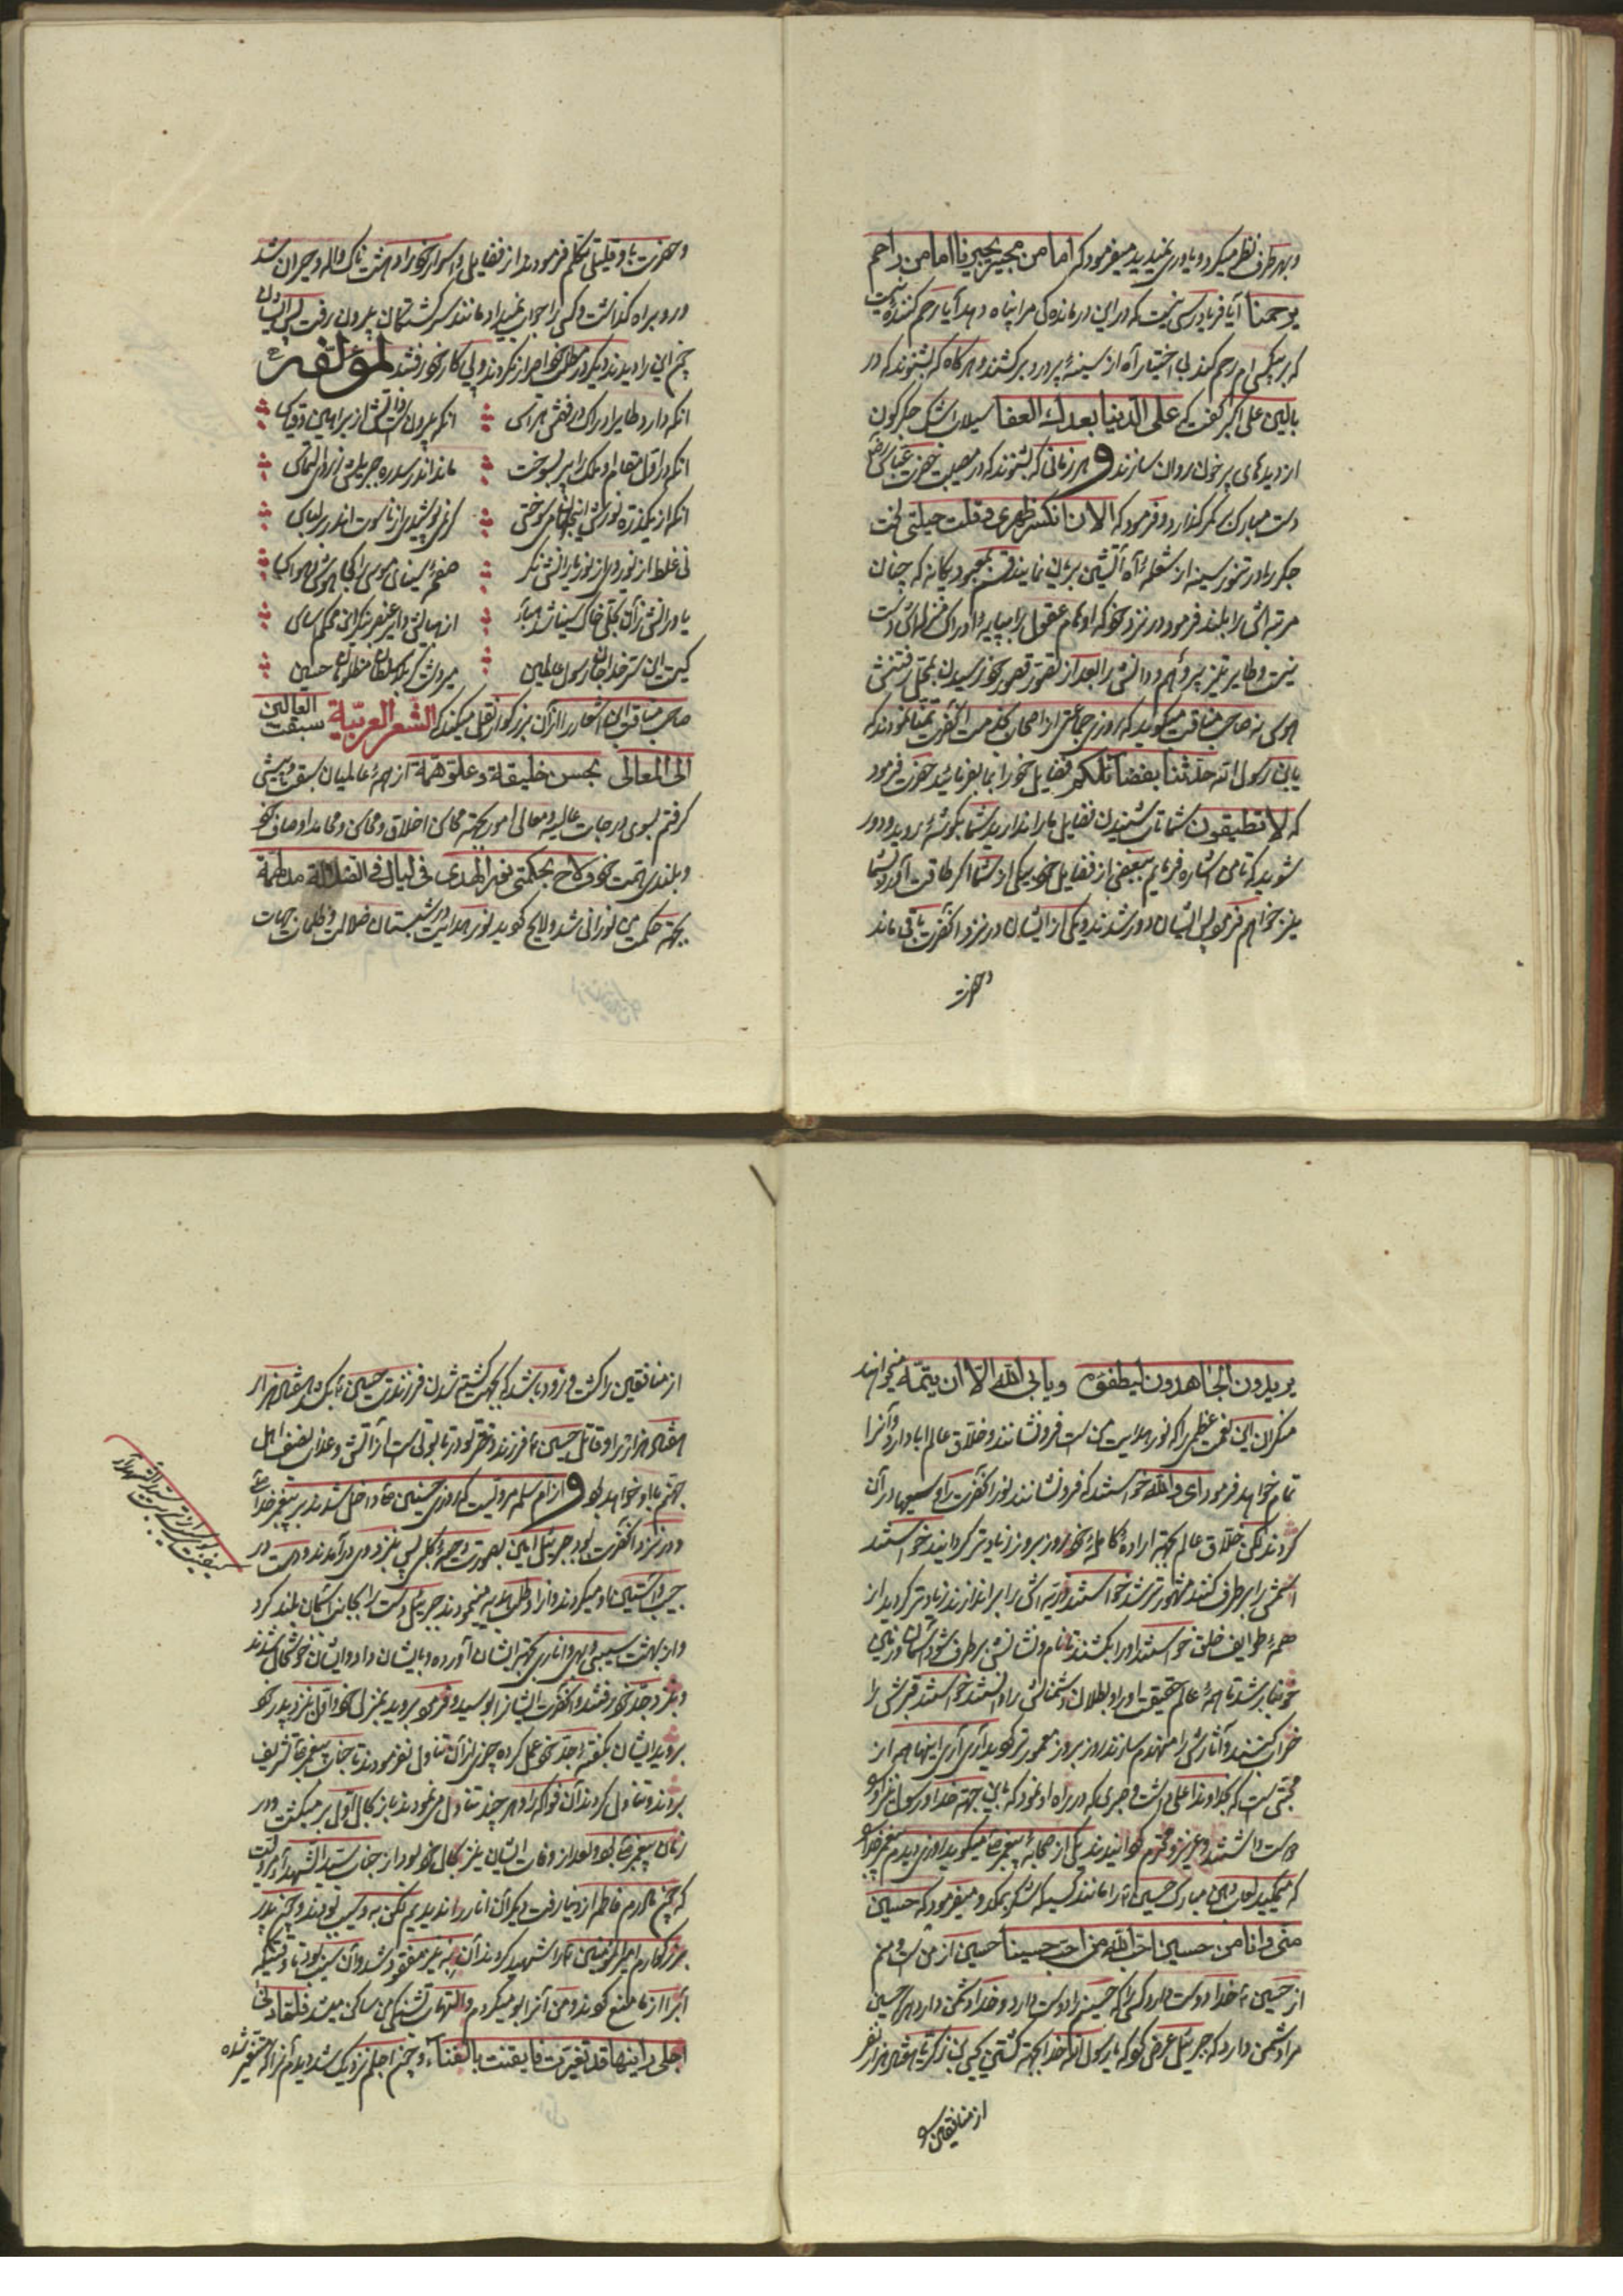 وبهر طرف نظر میکرد و یاوری نمیدید میفرمود که اما من مجیر یجیرنا اما من راحم
یرحمنا آیا فریادرسی نیست که در این درماندگی مرا پناه دهد آیا رحم کننده نیست
که بر بیکسی ام رحم کند بی اختیار آه از سینه پر درد برکشند و هر گاه که بشنوند که در
بالین علی اکبر گفت که علی الدنیا بعدك العفا سیلاب اشک جگرگون
از دیدهای پر خون روان سازند و هر زمانی که بشنوند که در مصیبت حضرت عباس
دست مبارک بر کمر گذارد و فرمود که الان انکسر ظهری و قلت حیلتی لخت
جگر را در تنور سینه از شعله آه آتشین بریان نمایند قسم بمعبود یگانه که چنان
مرتبه اش را بلند فرمود در نزد خود که اوهام عقول را بپایه ادراک منزلش دست
نیست و طایر تیز پر وهم و دانش را بعد از تصور قصور خود رسیدن بمحل رفعتش
هوسی نه صاحب مناقب میگوید که روزی جماعتی از اصحاب خدمت آنحضرت تمنا نمودند که
یابن رسول الله حدثنا بفضائلکم فضایل خود را بما بفرمائید حضرت فرمود
که لا تطیقون شما تاب شنیدن فضایل ما را ندارید شما بگوشه روید و دور
شوید که تا من اشاره فرمایم ببعضی از فضایل خود بیکی از شما اگر طاقت آورد بشما
نیز خواهم فرمود پس ایشان دور شدند و یکی از ایشان در نزد آنحضرت باقی ماند
وحضرت
وحضرت با او قلیلی تکلم فرمودند از فضایل و اسرار خود او دهشت ناک و واله و حیران شد
و رو براه گذاشت و کسی را جواب نمیداد مانند سرگشتگان بیرون رفت پس ایشان
چون این را دیدند دیگر در مطلب خود اصرار نکردند و پی کار خود رفتند لمؤلفه
آنکه دارد طایر ادراک در فضلش هراس
آنکه بیرونست ذاتش از براهین و قیاس
آنکه در اول مقام او ملک را پر بسوخت
ماند اندر سدره جبریلش ز روی التماس
آنکه از یکذره نورش این جهان میسوختی
گر نمی پوشید از ناسوت اندر بر لباس
نی غلط از نور وی از نور یارانش نگر
صعقه سینای موسی را کجا هوش و حواس
یاور انش ز آن تجلی خاک سینا شد هبا
کیست این سر خدا جان رسول عالمین
میر دشت کربلا سلطان مظلومان حسین
صاحب مناقب این اشعار را از آن بزرگوار نقل میکند که الشعر العربیة سبقت العالمین
الی المعالی بحسن خلیقة وعلو همة از همه عالمیان سبقت و پیشی
گرفتم بسوی درجات عالیه و معالی امور بجهة محاسن اخلاق و محاسن و محامد اوصاف خود
و بلندی همت خود ولاح بحکمتی نور الهدی فی لیال فی الضلالة مدلهمة
بجهة حکمت من نورانی شد و لایح گردید نور هدایت در شبستان ضلالت و ظلمات جهات
یریدون الجاهدون لیطفؤه ویابی الله الا ان یتمه میخواهند
منکران این نعمت عظمی را که نور هدایت من است فرو نشانند و خلاق عالم ابا دارد و آنرا
تمام خواهد فرمود ای والله خواستند که فرو نشانند نور آنحضرت را و سعیها در آن
کردند لکن خلاق عالم بجهة اراده کامله خود روز بروز زیادتر گردانید خواستند
اسمش را بر طرف کنند مشهورتر شد خواستند ذریه اش را براندازند زیادتر گردید از
همه طوایف خلق خواستند او را بکشند تا نام و نشانش بر طرف شود آسمان و زمین
خونبار شد تا همه عالم حقیقت او را و بطلان دشمنانش را دانستند خواستند قبرش را
خراب کنند و آثارش را منهدم سازند روز بروز معمورتر گردید آری آری اینها همه از
محبتی است که خداوند اعلی داشت و صبری که در راه او نمود که باین جهة خدا و رسول نیز او
دوست داشتند و عزیز و محترم گردانیدند یکی از صحابه پیغمبر میگوید روزی دیدم پیغمبر خدا
که میمکید لعاب دهن مبارک حسین را مانند کسیکه شکر بمکد و میفرمود که حسین
منی وانا من حسین احب الله من احب حسینا حسین از من است و من
از حسین خدا دوست دارد کسی را که حسینم را دوست دارد و خدا دشمن دارد هر که حسین
مرا دشمن دارد که جبرئیل عرض کرد که یا رسول الله خدا بجهة کشتن یحیی بن زکریا هفتاد هزار نفر
از منافقین
از منافقین را کشت و زود باشد که بجهت کشته شدن فرزندت حسین بکشد هفتاد هزار
هفتاد هزار نفر او قاتل حسین
جهنم با او خواهد بود و از ام سلمه مرویست که روزی حسنین داخل شدند بر پیغمبر خدا
و در نزد آنحضرت بود جبرئیل امین بصورت دحیه کلبی پس نزد وی در آمدند و دست در
جیب و آستین او میکردند و از او طلب هدیه مینمودند جبرئیل دست را بجانب آسمان بلند کرد
و از بهشت سیبی و بهی و اناری بجهة ایشان آورده و بایشان داد و ایشان خوشحال شدند
و نزد جد خود رفتند و آنحضرت ایشانرا بوسید و فرمود بروید بمنزل خود اول نزد پدر خود
بروید ایشان بگفته جد خود عمل کرده چیزی از آن تناول نفرمودند تا جناب پیغمبر تشریف
بردند و تناول کردند آن فواکه را و هر چند تناول میفرمودند باز بحال اول بر میگشت و در
زمان پیغمبر بود و بعد از وفات ایشان نیز بحال خود بود از جناب سید الشهداء مرویست
که چون مادرم فاطمه از دنیا رفت دیگر آن انار را ندیدیم لکن به و سیب بودند و چون پدر
بزرگوارم امیر المؤمنین را شهید کردند آن به نیز مفقود شد و آن سیب بود تا وقتیکه
آب را از ما منع کردند و من آنرا بو میکردم و التهاب تشنگی من ساکن میشد فلما دنی
اجلی رایتها قد تغیرت فایقنت بالفناء و چون اجلم نزدیک شد دیدم آنرا که متغیر شده